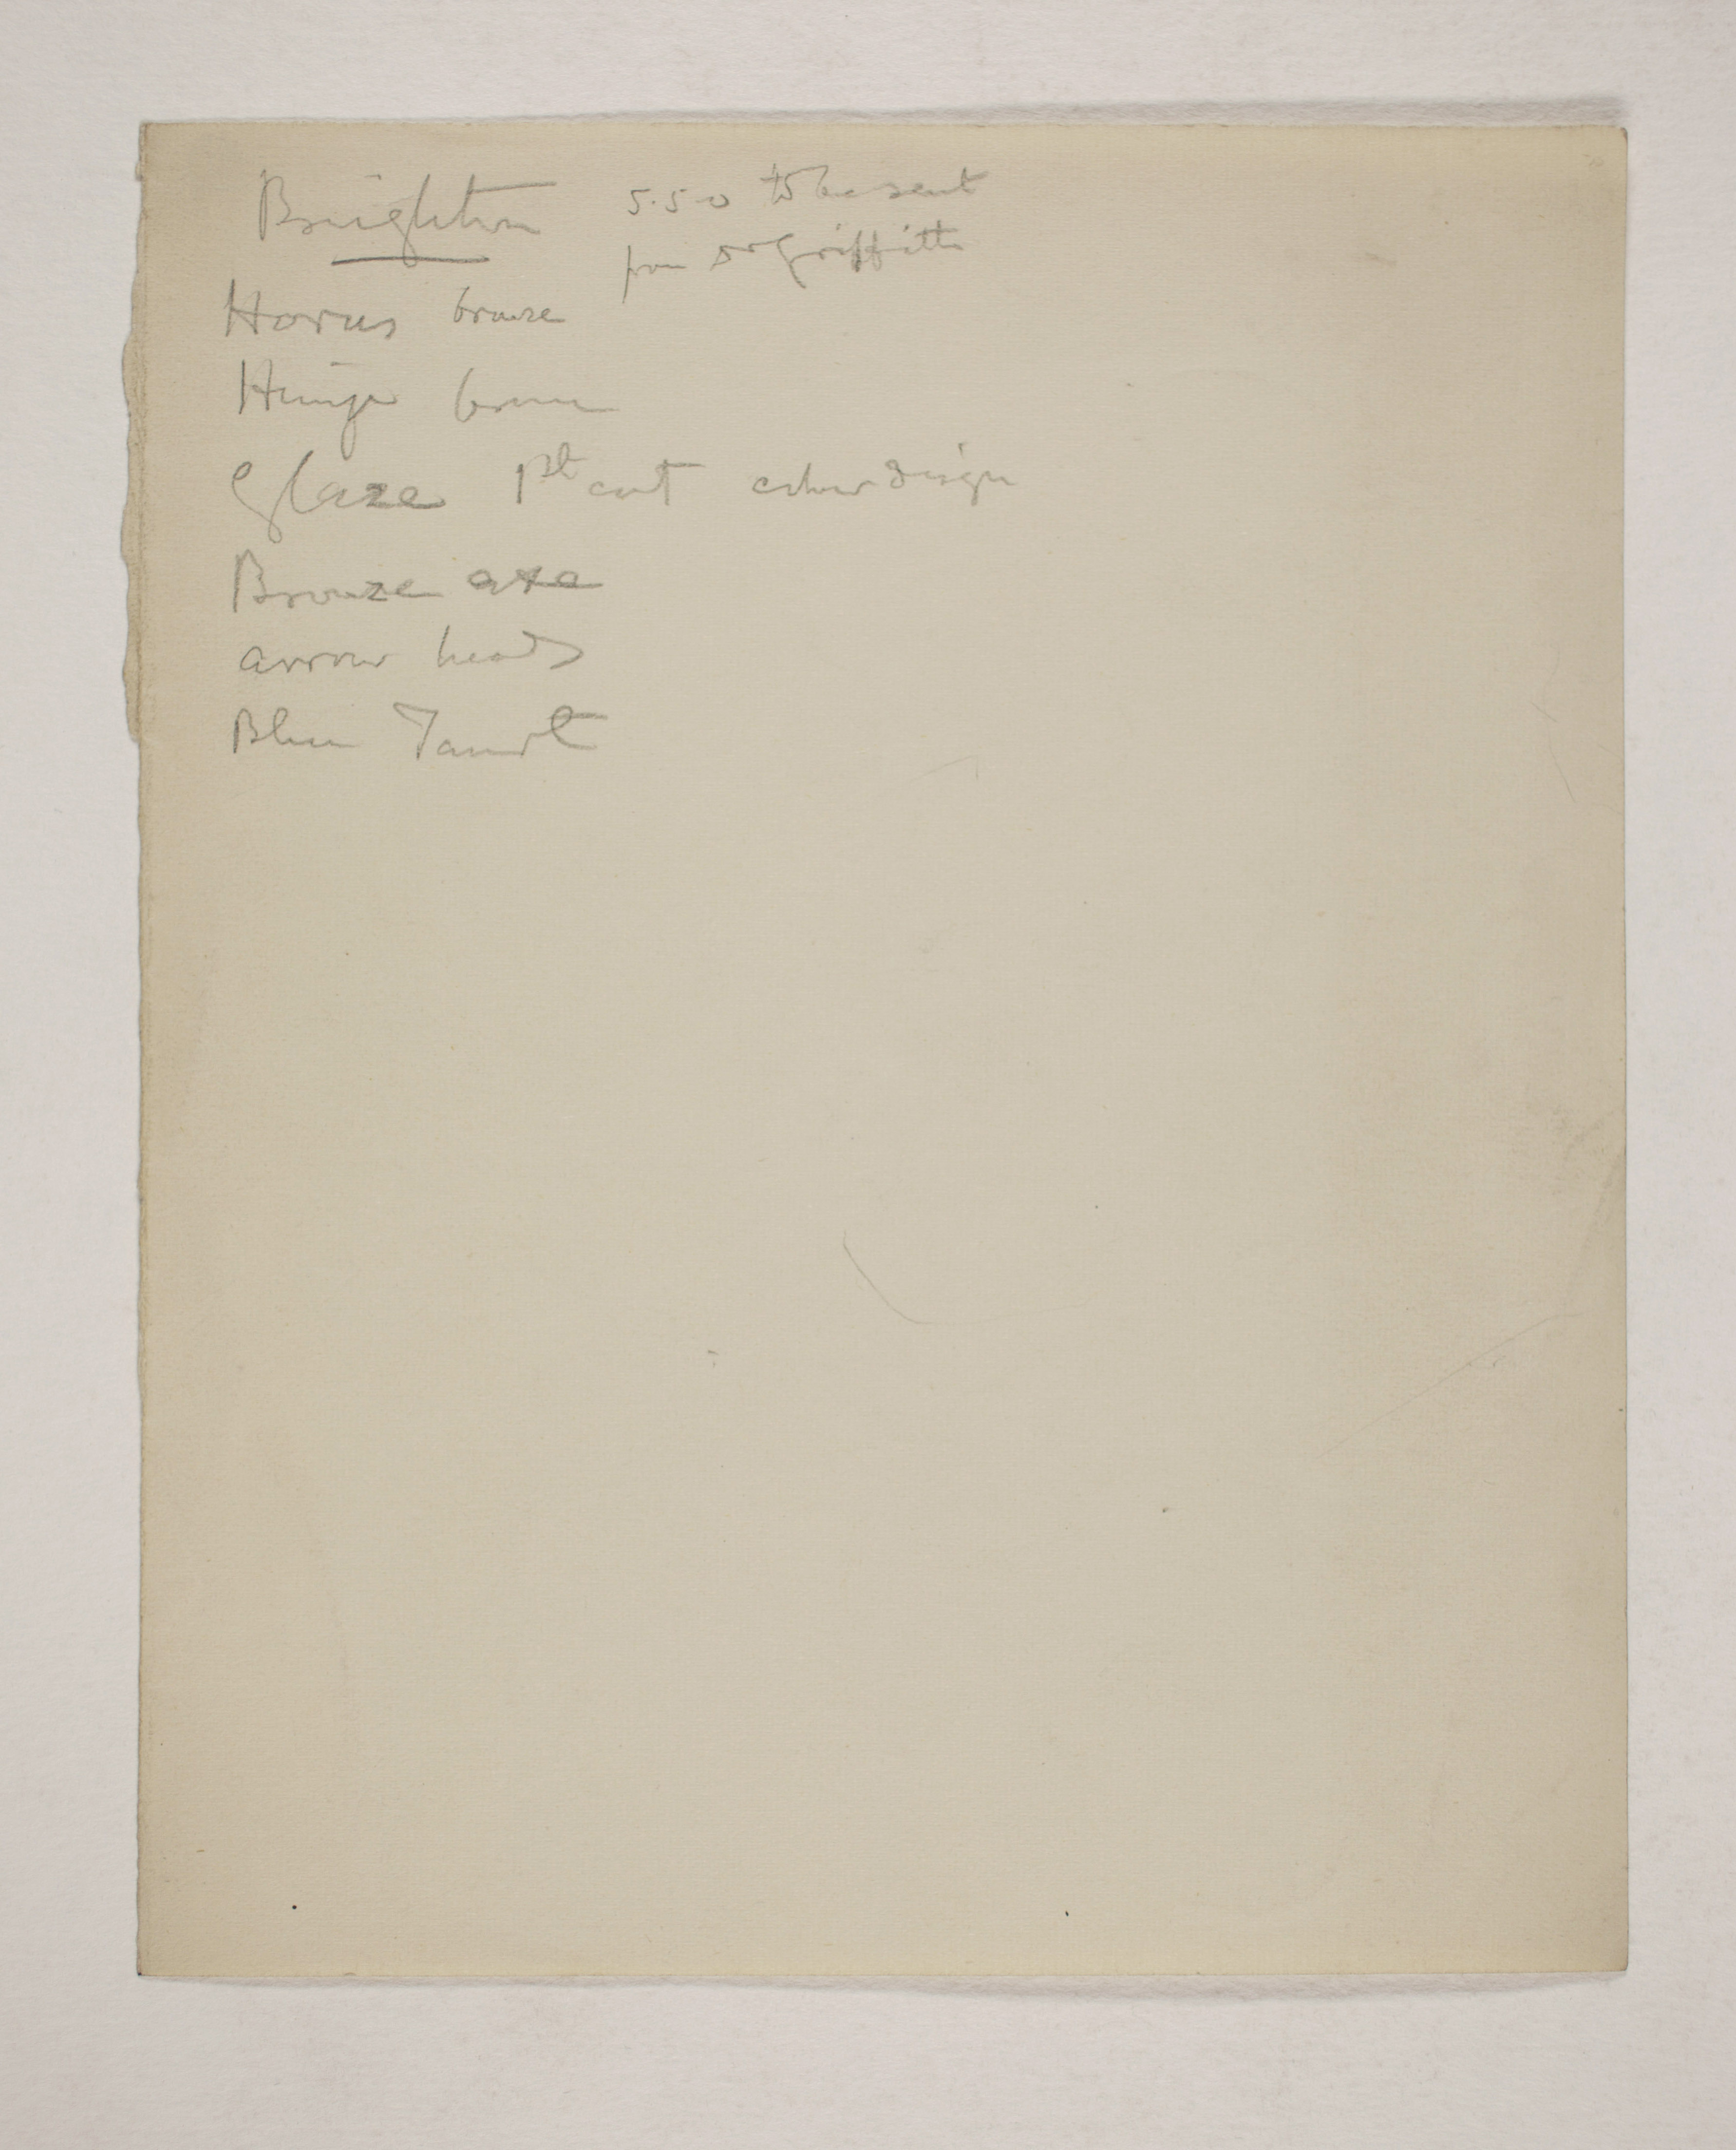 Brighton 5.5.0 to be sent
from Dr Griffith
Horus bronze
Hinge bronze
Glaze Pt cart colour design
Bronze axe
arrow heads
Blue